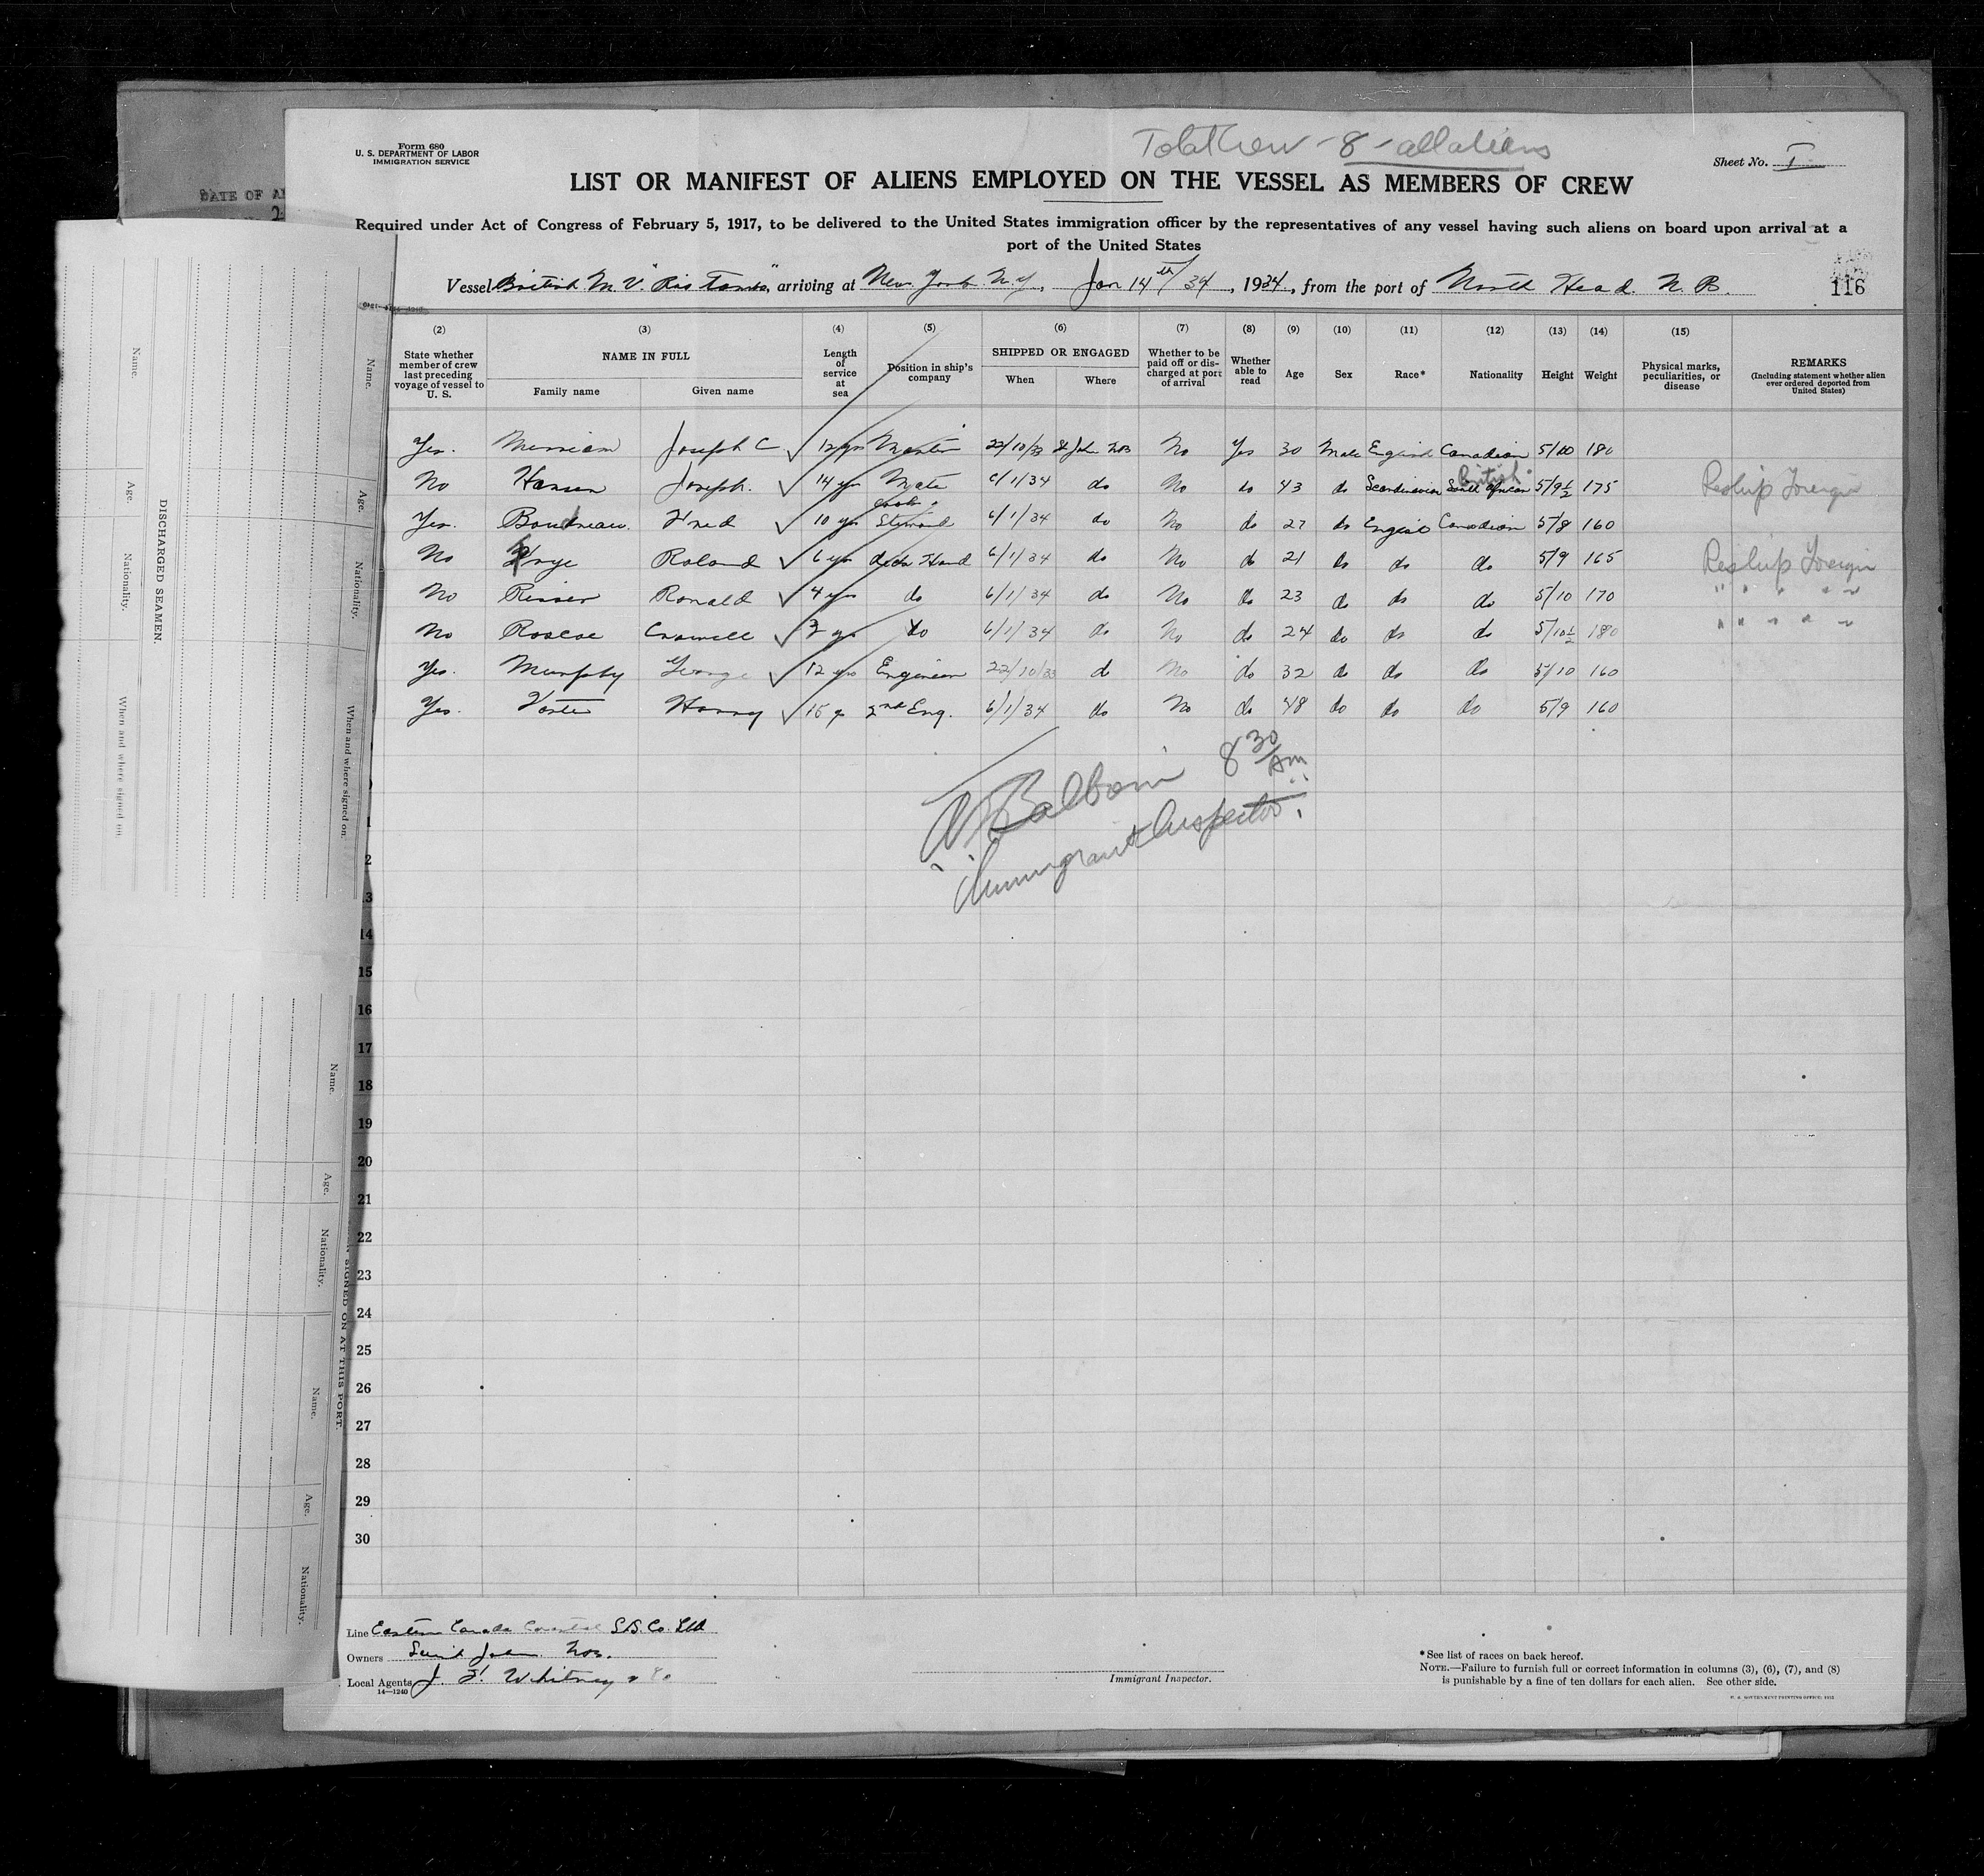 Form 680
U. S. DEPARTMENT OF LABOR
IMMIGRATION SERVICE
Total Crew - 8 - all aliens
Sheet No. I
LIST OR MANIFEST OF ALIENS EMPLOYED ON THE VESSEL AS MEMBERS OF CREW
Required under Act of Congress of February 5, 1917, to be delivered to the United States immigration officer by the representatives of any vessel having such aliens on board upon arrival at a
port of the United States
Vessel British M.V. , arriving at New York N.Y., Jan 14th/34, 1934, from the port of North Head. N.B.
116
(2) (3) (4) (5) (6) (7) (8) (9) (10) (11) (12) (13) (14) (15)
State whether member of crew last preceding voyage of vessel to U. S.
NAME IN FULL
Family name
Given name
Length of service at sea
Position in ship's company
SHIPPED OR ENGAGED
When
Where
Whether to be paid off or discharged at port of arrival
Whether able to read
Age
Sex
Race*
Nationality
Height
Weight
Physical marks, peculiarities, or disease
REMARKS
(Including statement whether alien ever ordered deported from United States)
Yes. Merriam Joseph C ✓ 12 yrs Master 22/10/33 St John NB No Yes 30 Male English Canadian 5/10 180
No Hansen Joseph. ✓ 14 yrs Mate 6/1/34 do No do 43 do Scandinavian British South African 5/9½ 175 Reship Foreign
Yes. Boudreau Fred ✓ 10 yrs Cook Steward 6/1/34 do No do 27 do English Canadian 5/8 160
No Frye Roland ✓ 6 yrs deck Hand 6/1/34 do No do 21 do do do 5/9 165 Reship Foreign
No Risser Ronald ✓ 4 yrs do 6/1/34 do No do 23 do do do 5/10 170 " " " " "
No Roscoe Cromwell ✓ yrs do 6/1/34 do No do 24 do do do 5/10½ 180 " " " " "
Yes. Murphy George ✓ 12 yrs Engineer 22/10/33 do No do 32 do do do 5/10 160
Yes. Harry ✓ 15 yrs 2nd Eng. 6/1/34 do No do 48 do do do 5/9 160
8 30 AM
Immigrant Inspector.
1
2
13
14
15
16
17
18
19
20
21
22
23
24
25
26
27
28
29
30
Line Eastern Canada Coastal S.S. Co. Ltd
Owners Saint John N.B.
Local Agents J. F. Whitney & Co
14—1240
Immigrant Inspector.
*See list of races on back hereof.
NOTE.—Failure to furnish full or correct information in columns (3), (6), (7), and (8)
is punishable by a fine of ten dollars for each alien. See other side.
DATE OF
DISCHARGED SEAMEN.
Name.
Age.
Nationality.
When and where signed on.
Name.
Age.
Nationality.
When and where signed on.
SIGNED ON AT THIS PORT.
Name.
Age.
Nationality.
Name.
Age.
Nationality.